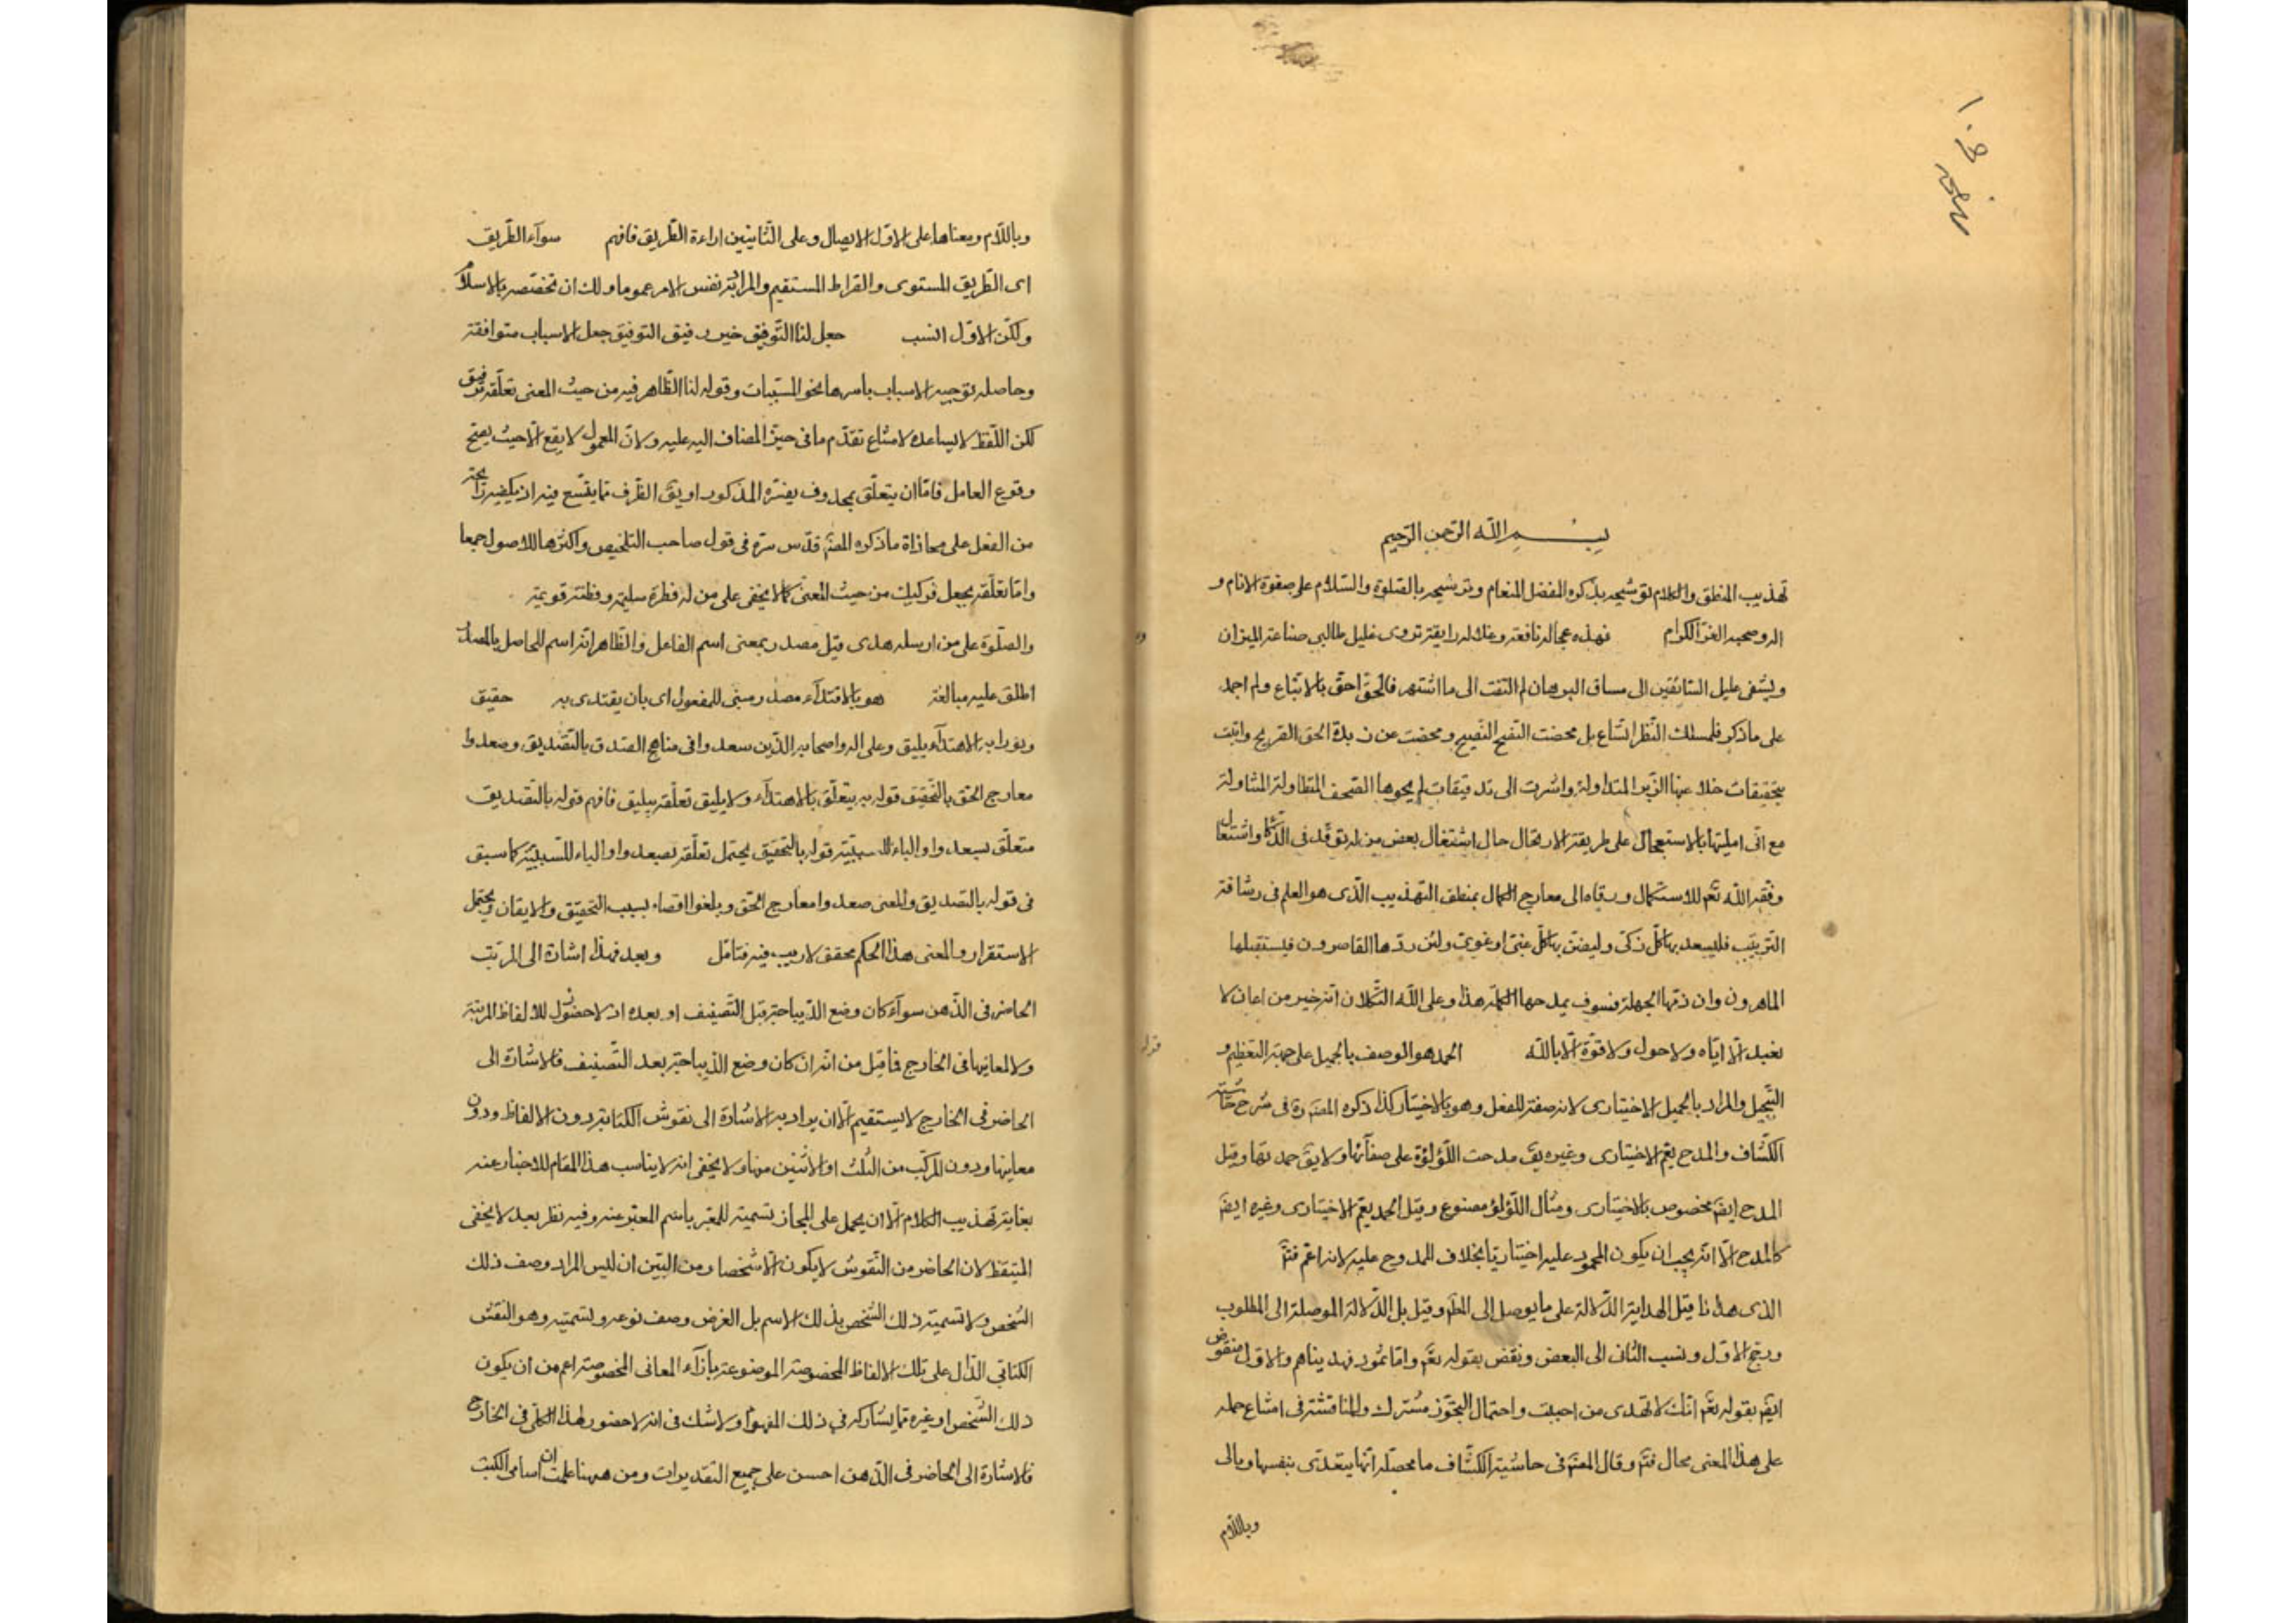 بسم الله الرحمن الرحيم
تهذيب المنطق والكلام توشيحه بذكره المفضل المنعام وترشيحه بالصلوة والسلام على صفوة الانام و
اله وصحبه الغر الكرام فهذه عجالة نافعة وعلالة رايقة تروى غليل طالبي صناعة الميزان
ويشفى عليل الشائقين الى مساق البرهان لم التفت الى ما اشتهر فالحق احق بالاتباع ولم اجمد
على ما ذكر فلمسلك النظر اتساع بل محضت النصح النصيح ومخضت عن زبدة الحق الصريح واتيت
بتحقيقات خلا عنها الزبر المتداولة واشرت الى تدقيقات لم يحوها الصحف المتطاولة
مع انى امليتها بالاستعجال على طريقة الارتجال حال اشتغال بعض من له توقد فى الذكا واشتعال
وفقه الله تع للاستكمال ورقاه الى معارج الكمال بمنطق التهذيب الذى هو العلم فى رشاقة
الترتيب فليسعد بها كل زكى وليضن بها كل غبى او غوى ولئن ردها القاصرون فيستقبلها
الماهرون وان ذمها الجهلة فسوف يمدحها الكملة هذا وعلى الله التكلان انه خير من اعان لا
نعبد الا اياه ولا حول ولا قوة الا بالله الحمد هو الوصف بالجميل على جهة التعظيم و
التبجيل والمراد بالجميل الاختيارى لانه صفة للفعل وهو بالاختيار كذا ذكره المصن ره فى شرح حاشية
الكشاف والمدح يعم الاختيارى وغيره يق مدحت اللؤلؤة على صفائها ولا يق حمدتها وقيل
المدح ايض مخصوص بالاختيارى ومثال اللؤلؤ مصنوع وقيل الحمد يعم الاختيارى وغيره ايض
كالمدح الا انه يجب ان يكون المحمود عليه اختياريا بخلاف الممدوح عليه لانه اعم فتم
الذى هدانا قيل الهداية الدلالة على ما يوصل الى المط وقيل بل الدلالة الموصلة الى المطلوب
ورجح الاول ونسب الثانى الى البعض ونقض بقوله تع واما ثمود فهديناهم والاول منقوض
ايض بقوله تع انك لا تهدى من احببت واحتمال التجوز مشترك والمناقشة فى امتناع حمله
على هذا المعنى محال فتم وقال المصن فى حاشية الكشاف ما محصله انها يتعدى بنفسها وبالى
وباللام
وباللام ومعناها على الاول الايصال وعلى الثانيين اراءة الطريق فافهم سوآء الطريق
اى الطريق المستوى والصراط المستقيم والمراد به نفس الامر عموما ولك ان تخصصه بالاسلام
ولكن الاول انسب جعل لنا التوفيق خير رفيق التوفيق جعل الاسباب متوافقة
وحاصله توجيه الاسباب باسرها نحو المسببات وقوله لنا الظاهر فيه من حيث المعنى تعلقه برفيق
لكن اللفظ لا يساعده لامتناع تقدم ما فى حيز المضاف اليه عليه ولان المعمول لا يقع الا حيث يصح
وقوع العامل فاما ان يتعلق بمحذوف يفسره المذكور او يق الظرف مما يتسع فيه اذ يكفيه رائحة
من الفعل على محاذاة ما ذكره المصن قدس سره فى قول صاحب التلخيص واكثرها للاصول جمعا
واما تعلقه بجعل فركيك من حيث المعنى كما لا يخفى على من له فطرة سليمة وفطنة قويمة
والصلوة على من ارسله هدى قيل مصدر بمعنى اسم الفاعل والظاهر انه اسم للحاصل بالمصدر
اطلق عليه مبالغة هو بالاقتدآء مصدر مبنى للمفعول اى بان يقتدى به حقيق
ونورا به الاهتدآء يليق وعلى اله واصحابه الذين سعدوا فى مناهج الصدق بالتصديق وصعدوا
معارج الحق بالتحقيق قوله به يتعلق بالاهتدآء ولا يليق تعلقه بيليق فافهم قوله بالتصديق
متعلق بسعدوا والباء للسببية قوله بالتحقيق يحتمل تعلقه بصعدوا والباء للسببية كما سبق
فى قوله بالتصديق والمعنى صعدوا معارج الحق وبلغوا اقصاه بسبب التحقيق والايقان ويحتمل
الاستقرار والمعنى هذا الحكم محقق لا ريب فيه فتامل وبعد فهذا اشارة الى المرتب
الحاضر فى الذهن سوآء كان وضع الديباجة قبل التصنيف او بعده اذ لا حضور للالفاظ المرتبة
ولا لمعانيها فى الخارج فما قيل من انه ان كان وضع الديباجة بعد التصنيف فالاشارة الى
الحاضر فى الخارج لا يستقيم الا ان يراد به الاشارة الى نقوش الكتابة دون الالفاظ ودون
معانيها ودون المركب من الثلث او الاثنين منها ولا يخفى انه لا يناسب هذا المقام للاخبار عنه
بغاية تهذيب الكلام الا ان يحمل على المجاز تسمية للمعبر باسم المعبر عنه وفيه نظر بعد لا يخفى
المتيقظ لان الحاضر من النقوش لا يكون الا شخصا ومن البين ان ليس المراد وصف ذلك
الشخص ولا تسمية ذلك الشخص بذلك الاسم بل الغرض وصف نوعه وتسميته وهو النقش
الكتابي الدال على تلك الالفاظ المخصوصة الموضوعة بازآء المعانى المخصوصة اعم من ان يكون
ذلك الشخص او غيره مما يشاركه فى ذلك المفهوم ولا شك فى انه لا حضور لهذا الكلى فى الخارج
فالاشارة الى الحاضر فى الذهن احسن على جميع التقديرات ومن ههنا علمت ان اسامى الكتب